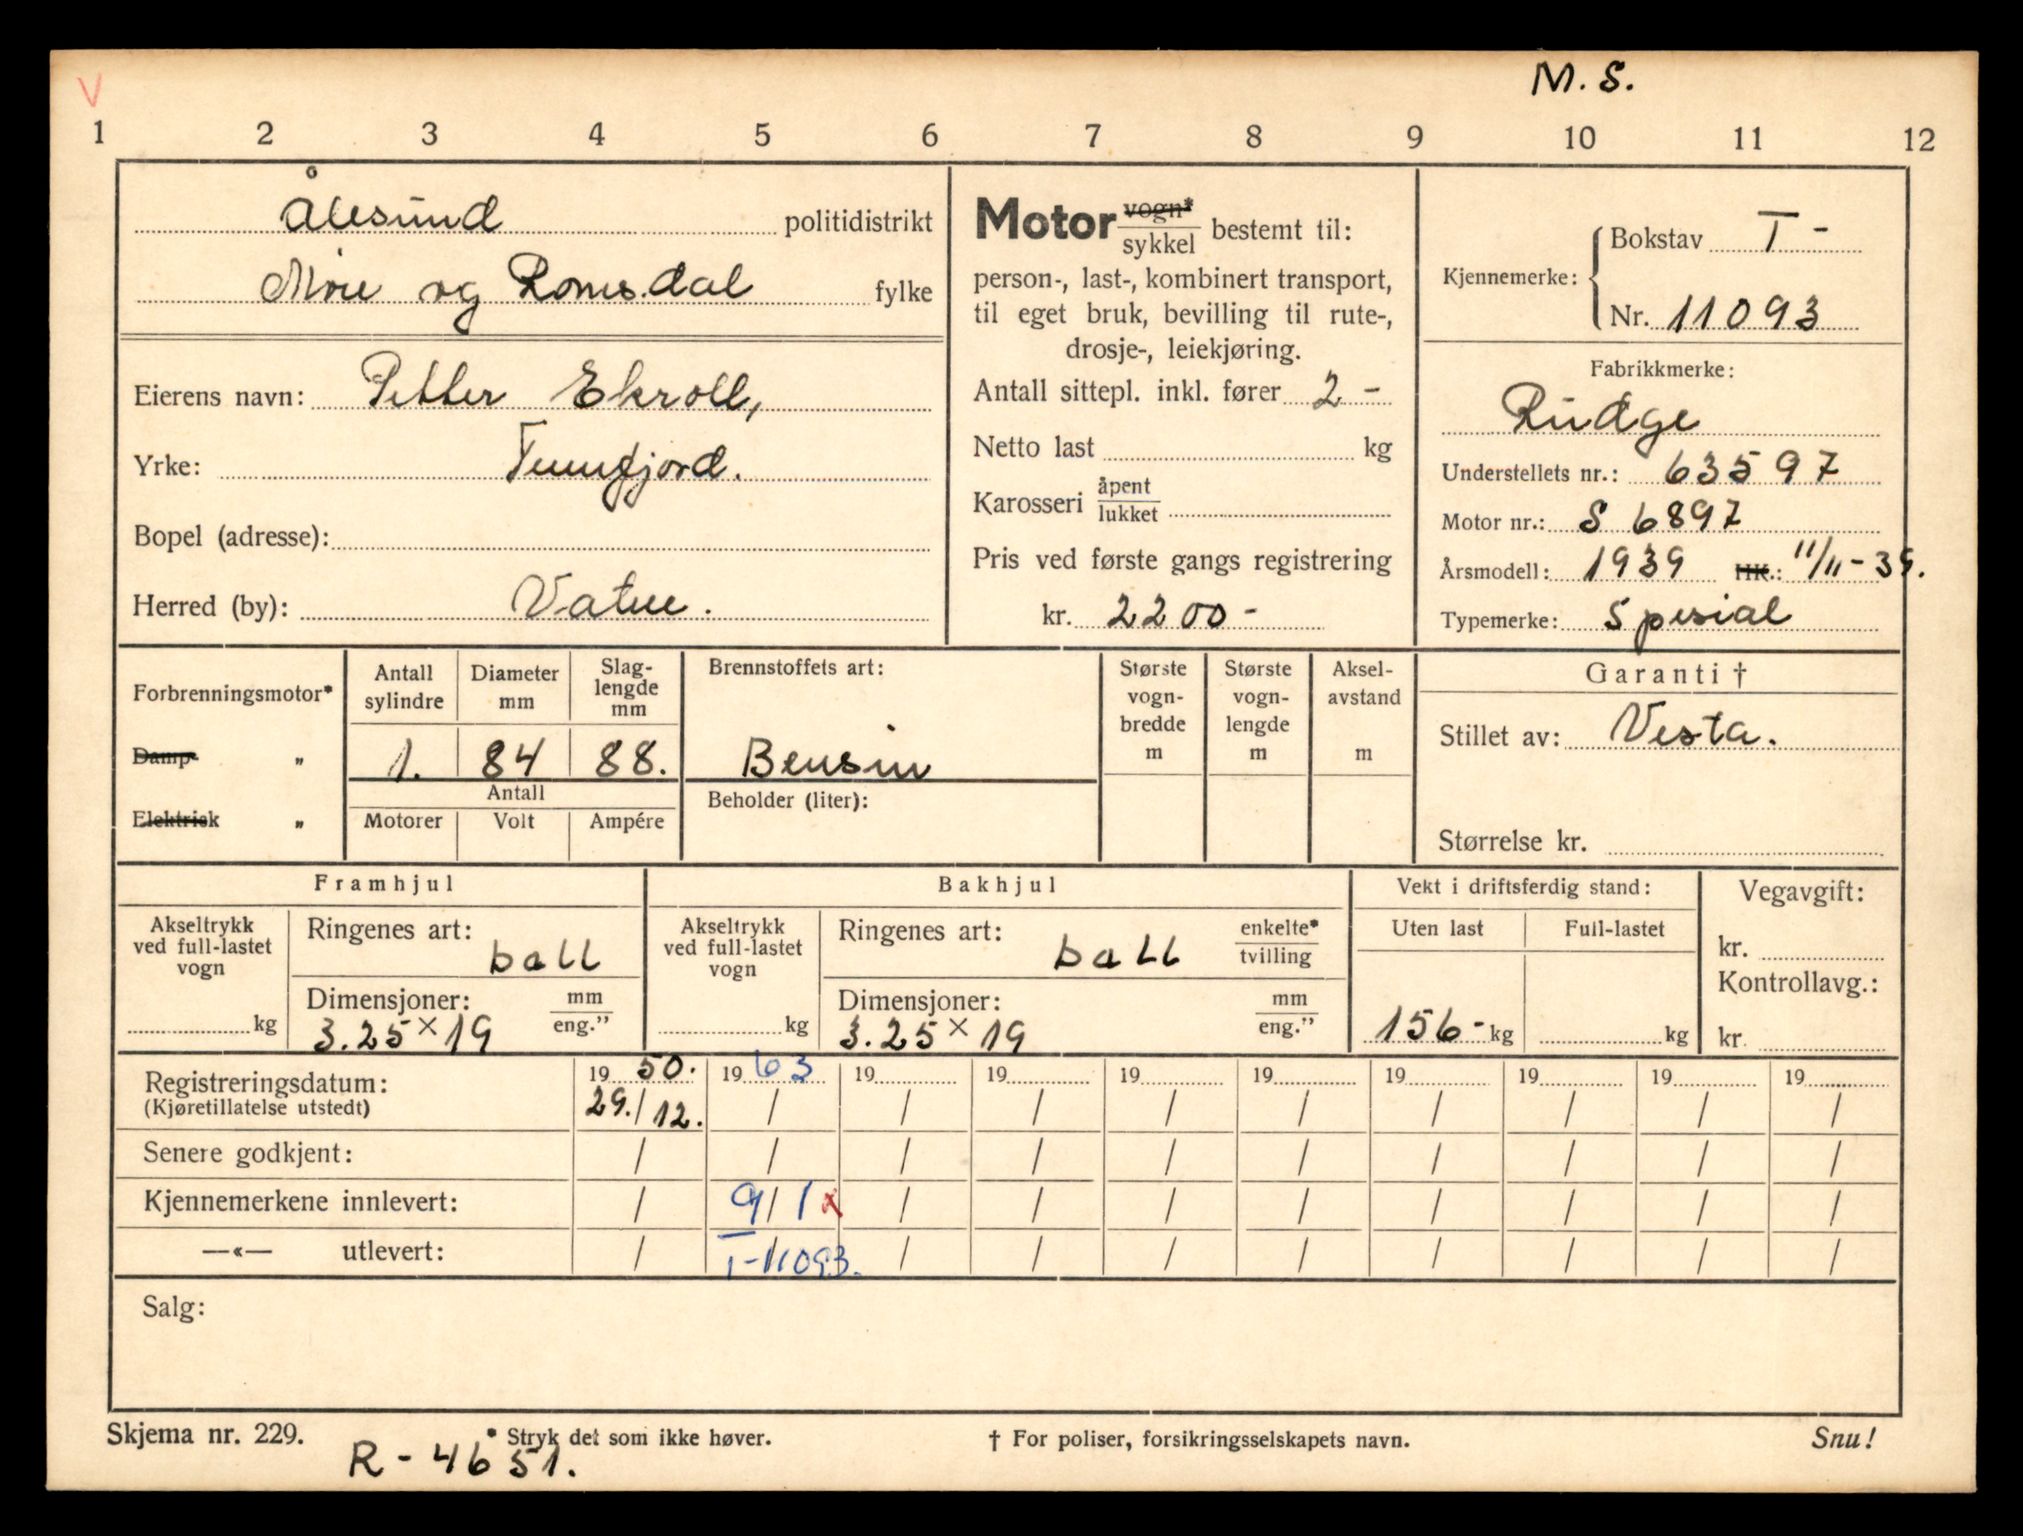 V
M. S.
1 2 3 4 5 6 7 8 9 10 11 12
Ålesund politidistrikt
Møre og Romsdal fylke
Eierens navn: Petter Ekroll,
Yrke: Tennfjord.
Bopel (adresse):
Herred (by): Vatne.
Motor vogn*
sykkel bestemt til:
person-, last-, kombinert transport,
til eget bruk, bevilling til rute-,
drosje-, leiekjøring.
Antall sittepl. inkl. fører 2 -
Netto last kg
Karosseri åpent
lukket
Pris ved første gangs registrering
kr. 2200-
Kjennemerke: Bokstav T -
Nr. 11093
Fabrikkmerke:
Rudge
Understellets nr.: 63597
Motor nr.: S 6897
Årsmodell: 1939 HK.: 11/11-39.
Typemerke: Spesial
Forbrenningsmotor*
Damp- „
Elektrisk „
Antall sylindre
Diameter mm
Slaglengde mm
1. 84 88.
Antall
Motorer Volt Ampére
Brennstoffets art:
Bensin
Beholder (liter):
Største vogn-bredde m
Største vogn-lengde m
Aksel-avstand m
Garanti †
Stillet av: Vesta.
Størrelse kr.
Framhjul
Akseltrykk
ved full-lastet
vogn
kg
Ringenes art:
ball
Dimensjoner: mm
eng.”
3.25 × 19
Bakhjul
Akseltrykk
ved full-lastet
vogn
kg
Ringenes art: enkelte*
tvilling
ball
Dimensjoner: mm
eng.”
3.25 × 19
Vekt i driftsferdig stand:
Uten last Full-lastet
156- kg kg
Vegavgift:
kr.
Kontrollavg.:
kr.
Registreringsdatum: 19 50. 19 63 19 19 19 19 19 19 19 19
(Kjøretillatelse utstedt) 29./12. / / / / / / / / /
Senere godkjent: / / / / / / / / / /
Kjennemerkene innlevert: / 9/1 x / / / / / / / /
—«— utlevert: / T-11093. / / / / / / / /
Salg:
Skjema nr. 229. * Stryk det som ikke høver. † For poliser, forsikringsselskapets navn. Snu!
R - 4651.